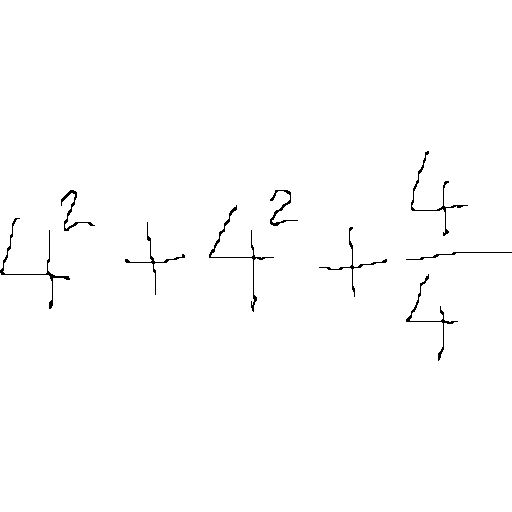 4² + 4² + 4/4